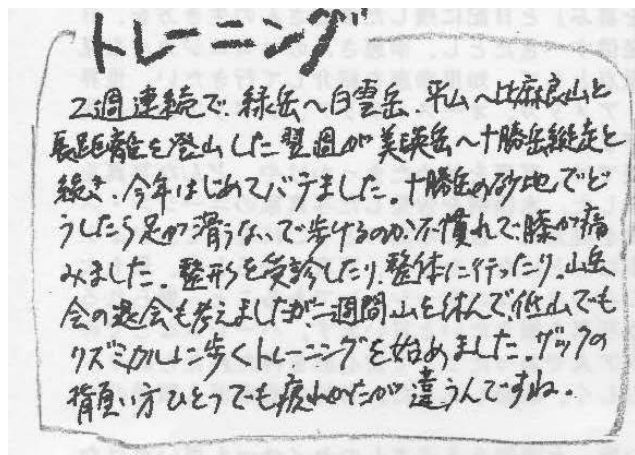 トレーニング
2週連続で、緑岳〜白雲岳、平山〜比麻良山と
長距離を登山した翌週が美瑛岳〜十勝岳縦走と
続き、今年はじめてバテました。十勝岳の砂地でど
うしたら足が滑らないで歩けるのか、不慣れで膝が痛
みました。整形を受診したり、整体に行ったり。山岳
会の退会も考えましたが、二週間山を休んで、低山でも
リズミカルに歩くトレーニングを始めました。ザックの
背負い方ひとつでも疲れかたが違うんですね。